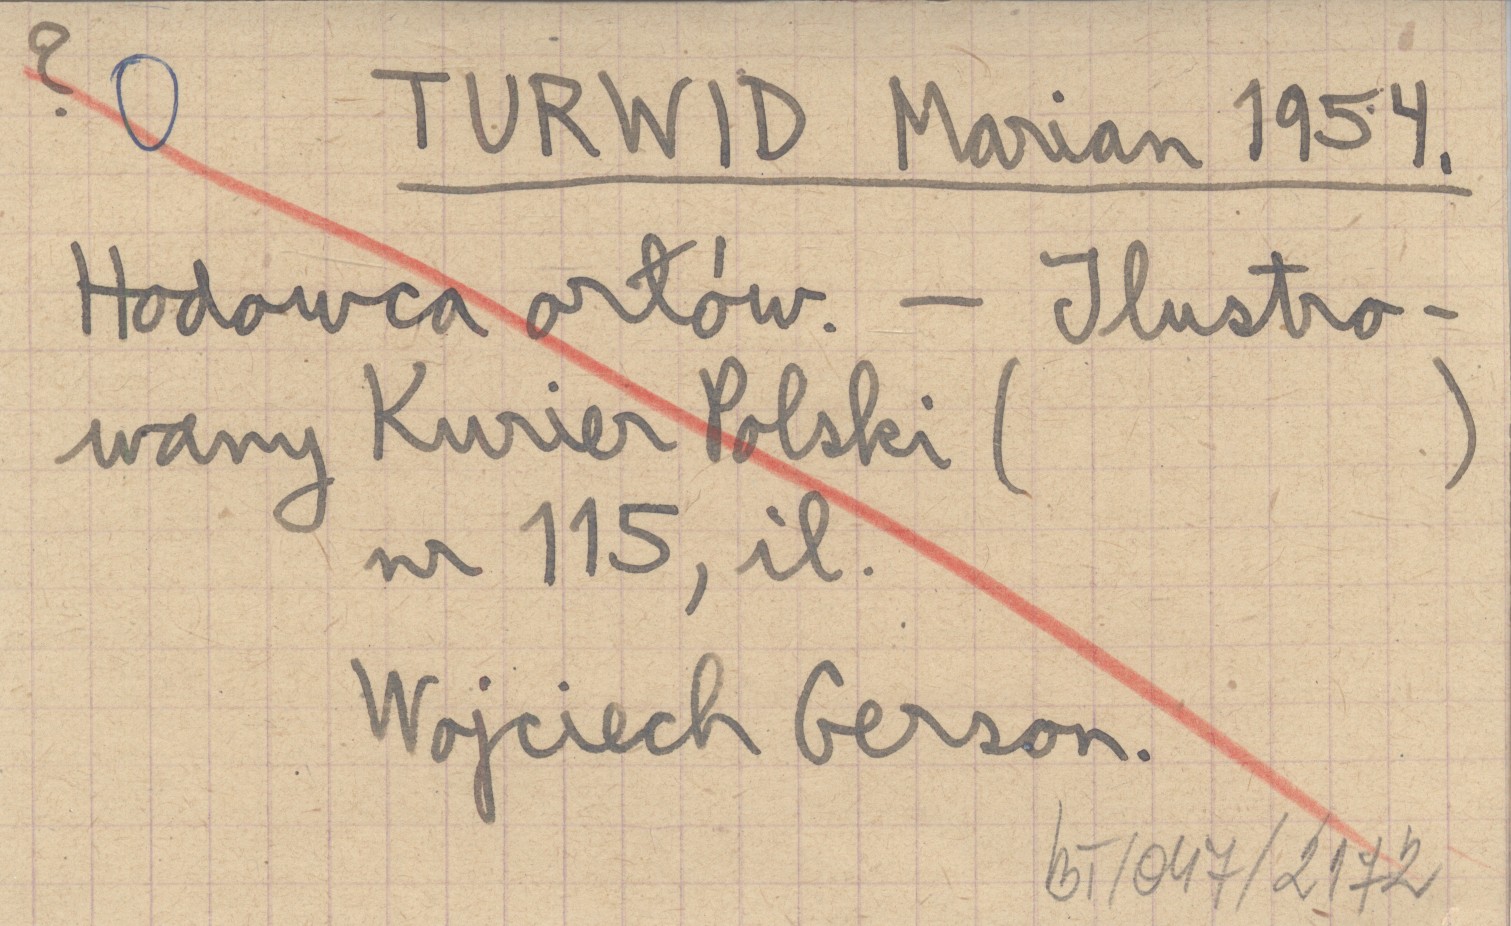 ? 0 TURWID Marian 1954.
Hodowca orłów. — Ilustro-
wany Kurier Polski ( )
nr 115, il.
Wojciech Gerson.
bT/047/2172